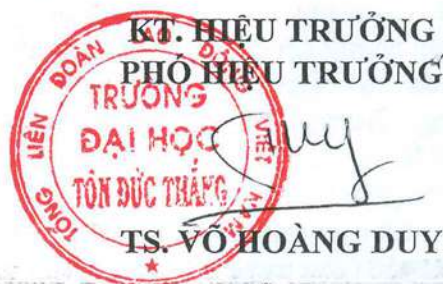 KT. HIỆU TRƯỞNG
PHÓ HIỆU TRƯỞNG
TỔNG LIÊN ĐOÀN LAO ĐỘNG VIỆT NAM
TRƯỜNG
ĐẠI HỌC
TÔN ĐỨC THẮNG
Duy
TS. VÕ HOÀNG DUY